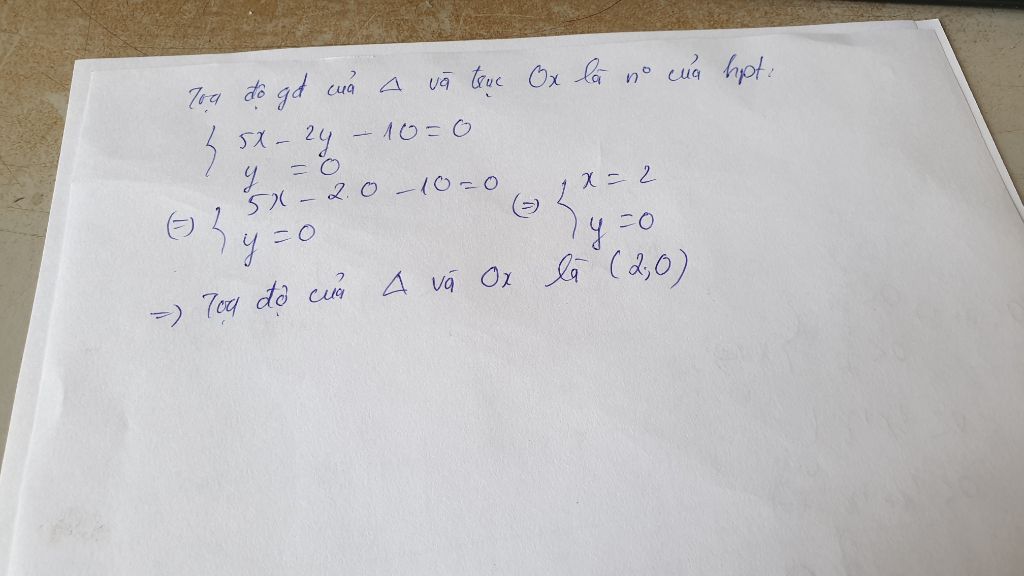 Toạ độ gđ của Δ và trục Ox là n° của hpt:
{ 5x - 2y - 10 = 0
y = 0
(=) { 5x - 2.0 - 10 = 0 (=) { x = 2
y = 0 y = 0
=) Toạ độ của Δ và Ox là (2,0)